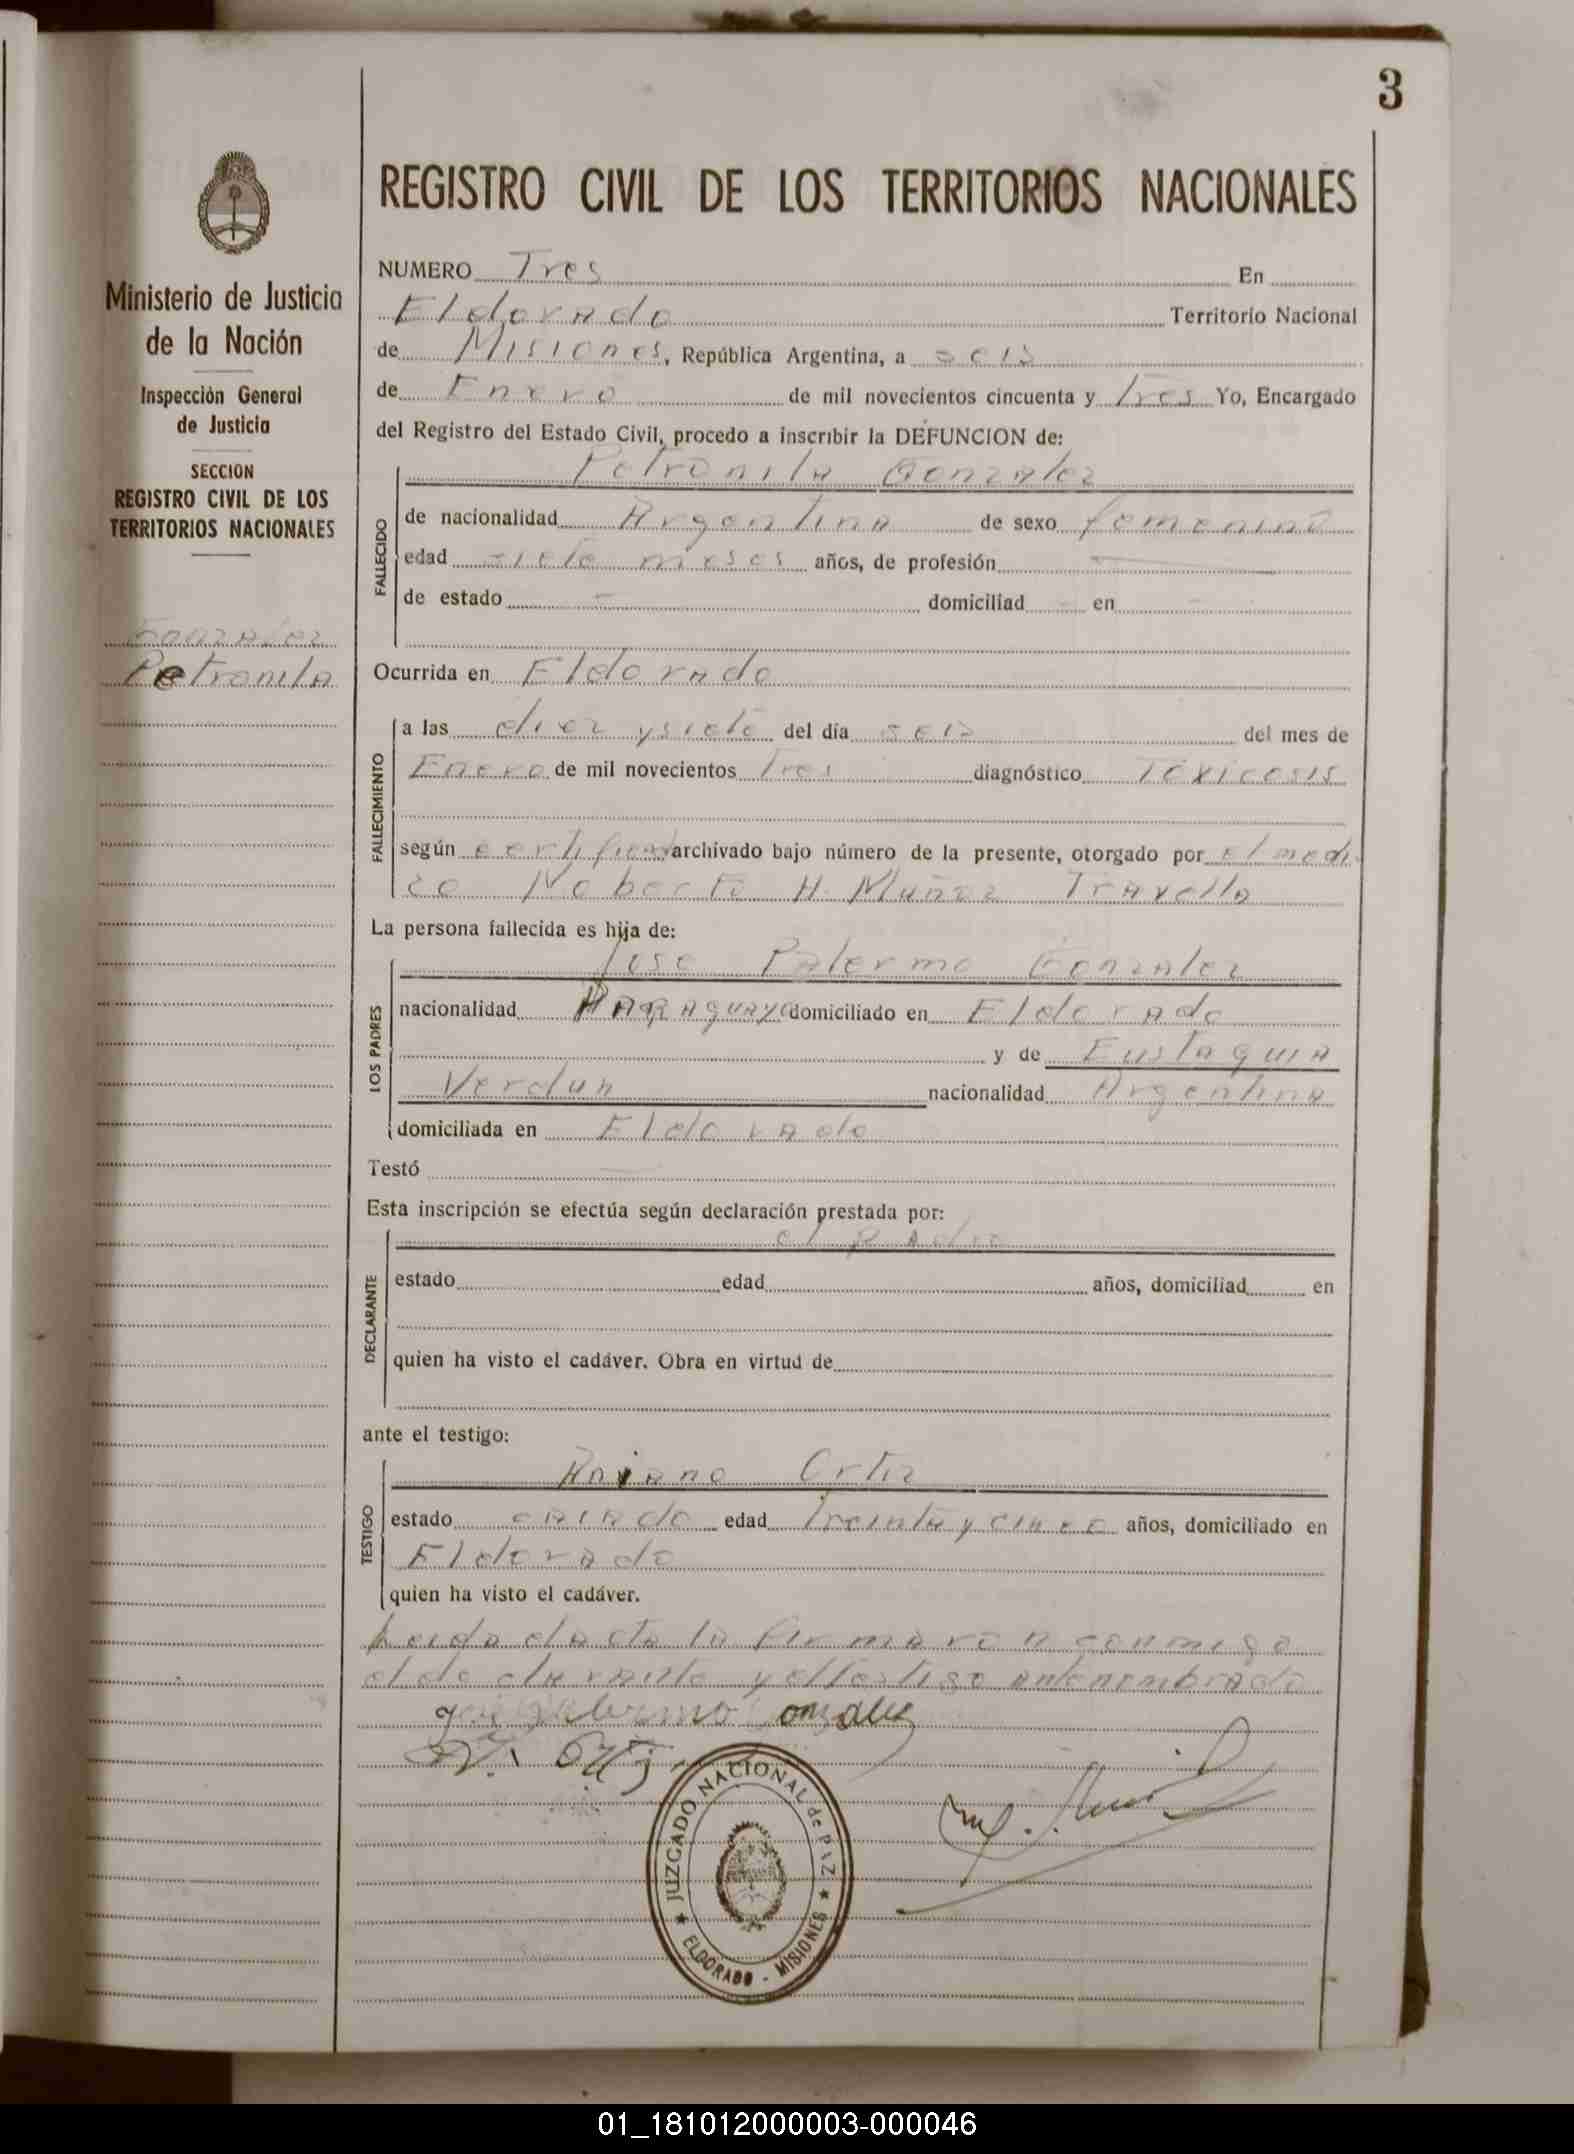 3
REGISTRO CIVIL DE LOS TERRITORIOS NACIONALES
Ministerio de Justicia
de la Nación
Inspección General
de Justicia
SECCION
REGISTRO CIVIL DE LOS
TERRITORIOS NACIONALES
Gonzalez
Petronila
NUMERO Tres En
Eldorado Territorio Nacional
de Misiones, República Argentina, a seis
de Enero de mil novecientos cincuenta y Tres Yo, Encargado
del Registro del Estado Civil, procedo a inscribir la DEFUNCION de:
FALLECIDO
Petronila Gonzalez
de nacionalidad Argentina de sexo femenino
edad siete meses años, de profesión —
de estado — domiciliad - en -
Ocurrida en Eldorado
FALLECIMIENTO
a las diez y siete del día seis del mes de
Enero de mil novecientos Tres diagnóstico Toxicosis
según certificado archivado bajo número de la presente, otorgado por el medi
co Roberto H. Muñoz Travella
La persona fallecida es hija de:
LOS PADRES
Jose Palermo Gonzalez
nacionalidad PARAGUAYO domiciliado en Eldorado
y de Eustaquia
Verdun nacionalidad Argentina
domiciliada en Eldorado
Testó —
Esta inscripción se efectúa según declaración prestada por:
DECLARANTE
el padre
estado edad años, domiciliad en
quien ha visto el cadáver. Obra en virtud de
ante el testigo:
TESTIGO
Ortiz
estado casado edad Treinta y cinco años, domiciliado en
Eldorado
quien ha visto el cadáver.
Leida el acta la firmaron conmigo
el declarante y el testigo antenombrado
Gonzalez
Ortiz
JUZGADO NACIONAL de PAZ
★ ELDORADO - MISIONES ★
01_181012000003-000046